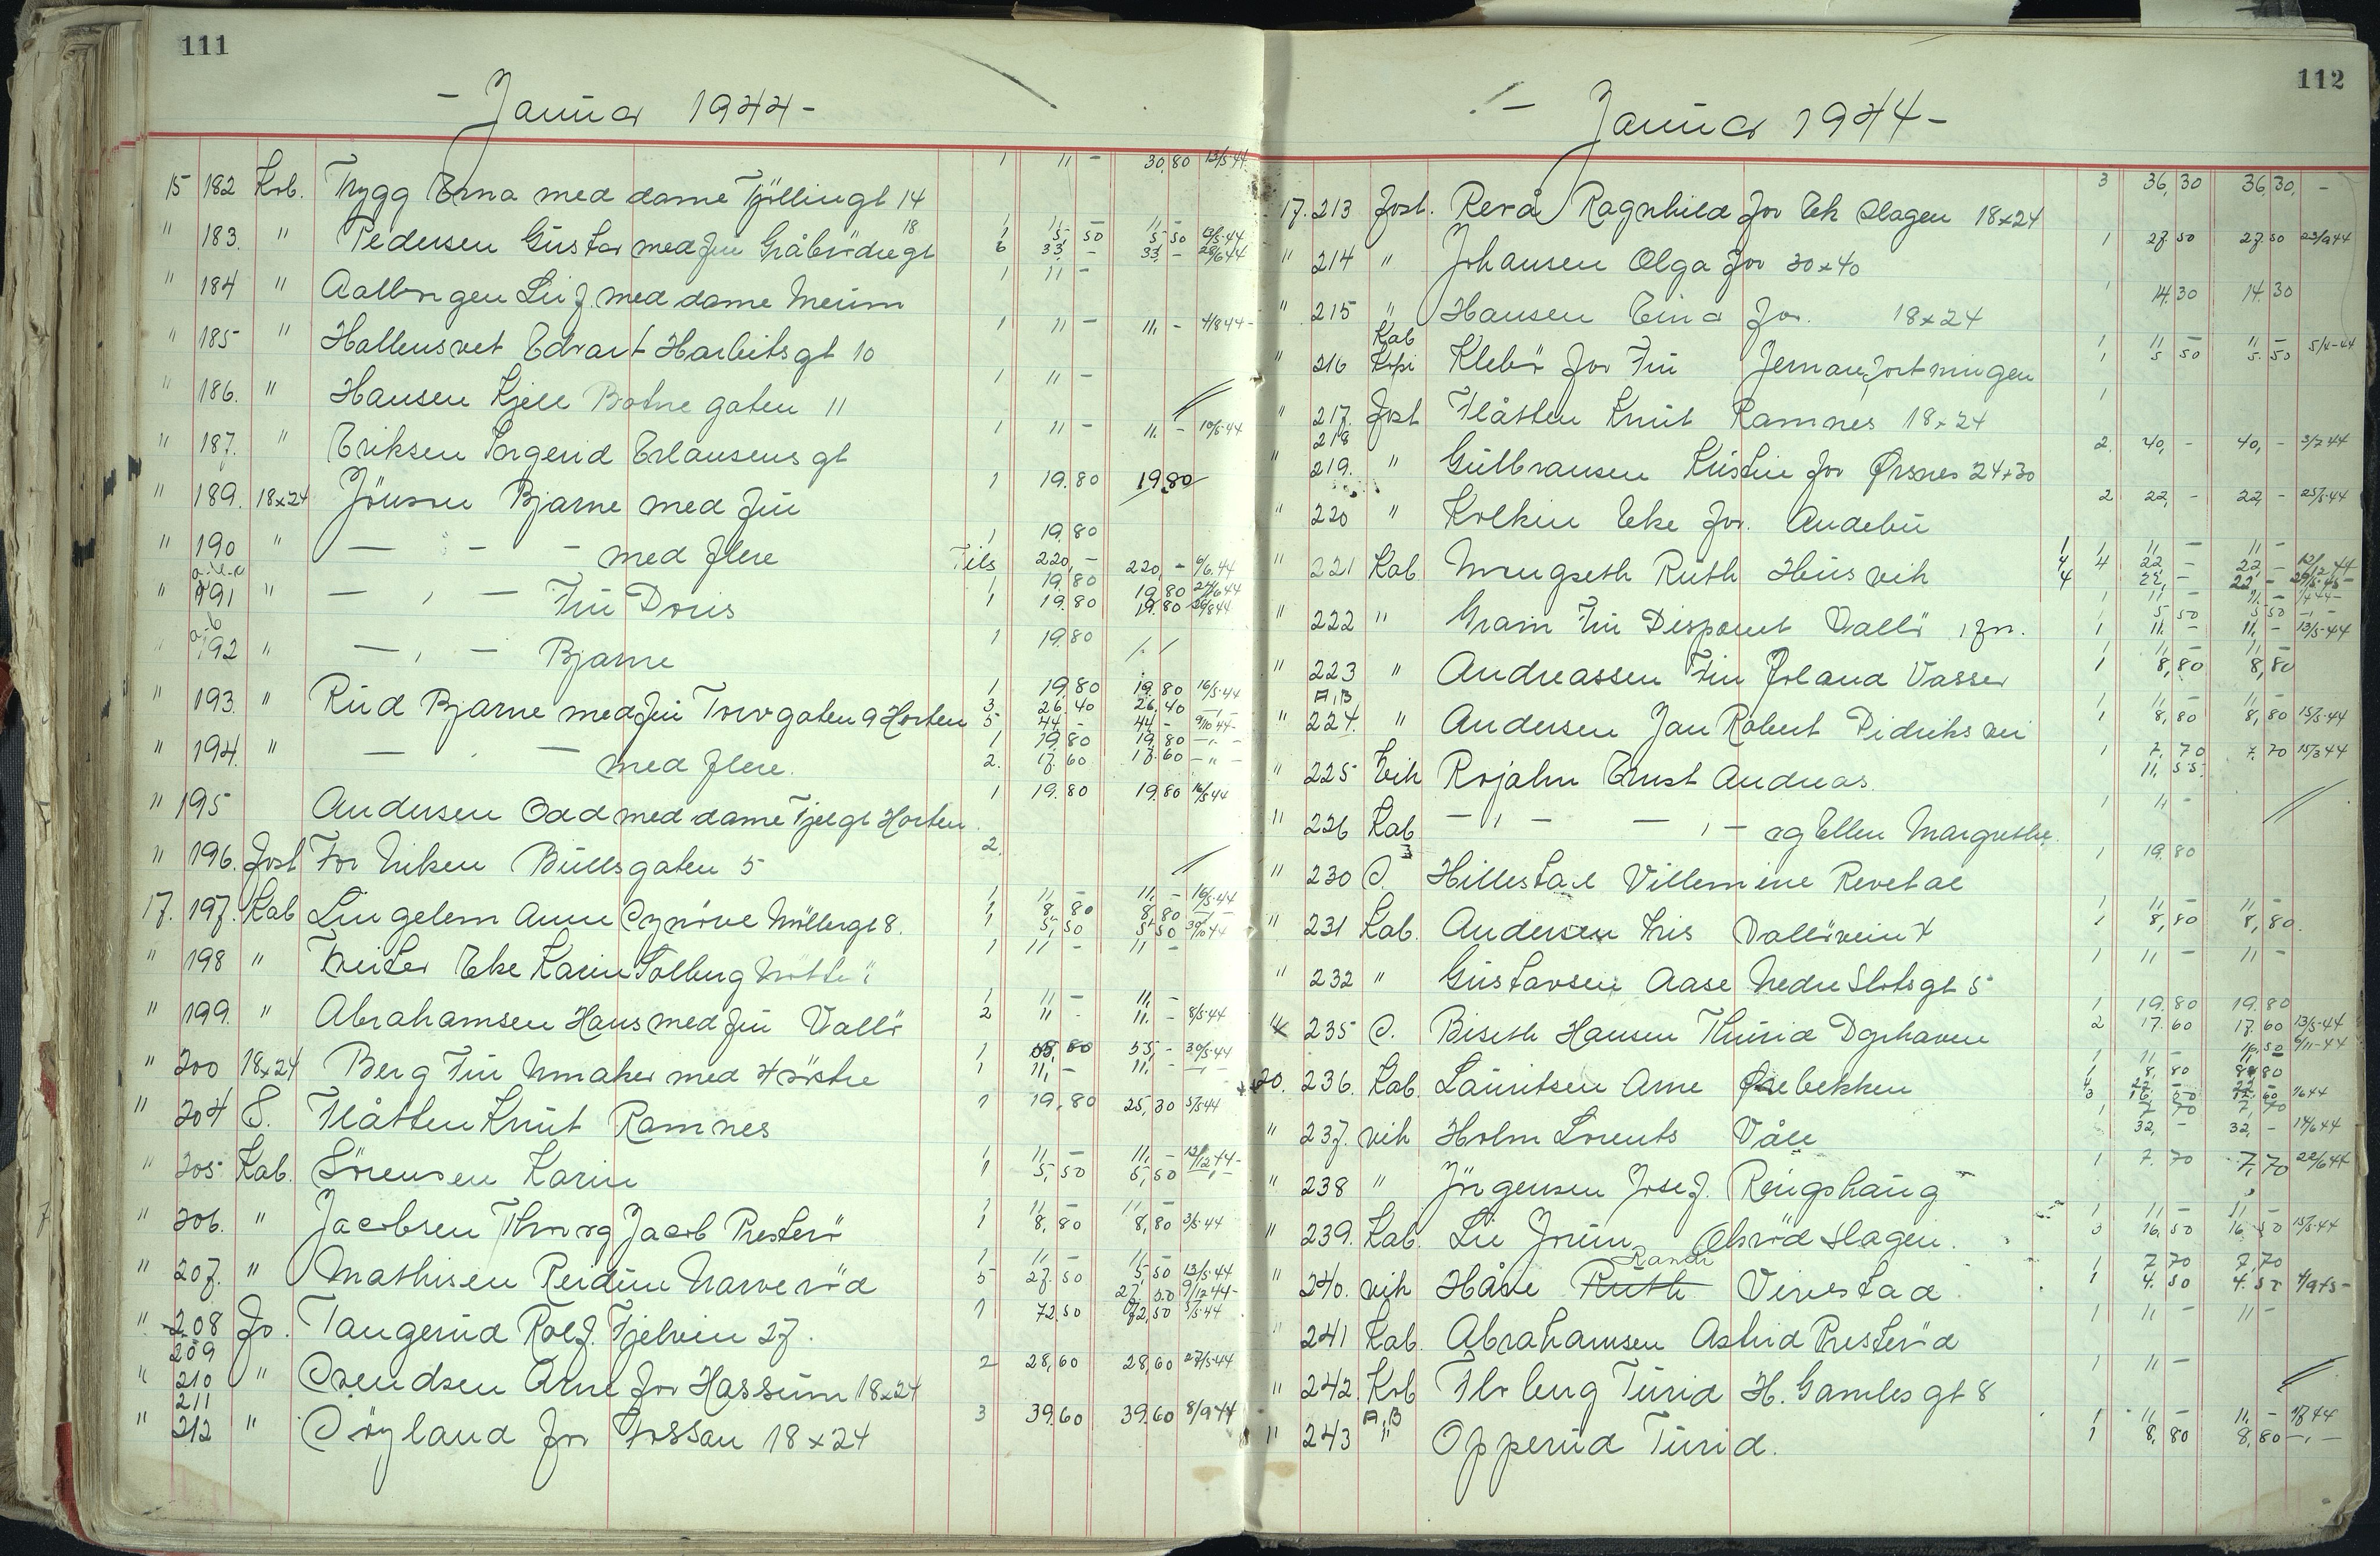 111
- Januar 1944 -
15 182 Kab. Trygg Erna med dame Tjöllingt 14 1 11 - 30,80 13/5-44
" 183. " Pedersen Gustav med fru Gråbrödregt 18 1 11 - 11 - 13/5-44
1 5 50 5 50
6 33, - 33, - 28/6 44
" 184 " Aalborgen Leif med dame Meum 1 11 -
" 185 " Hallensvet Edvart Harbitsgt 10 1 11 - 11, - 4/8 44-
" 186. " Hansen Kjell Botne gaten 11 1 11 -
" 187. " Eriksen Ingerid Erlausens gt 1 11 - 11. - 10/5-44
" 189. 18x24 Jönsson Bjarne med fru 1 19.80 19.80
" 190 " — " — med flere 1 19.80
Tils 220, - 220, - 6/6.44
" 191 " — " — Fru Doris 1 19.80 19.80 27/6 44
1 19.80 19.80 26/8 44
" 192 " — " — Bjarne 1 19.80
" 193. " Rud Bjarne med fru Torvgaten 9 Horten 1 19.80 19.80 16/5-44
3 26.40 26.40
5 44, - 44 - 9/10 44-
" 194. " — " — med flere. 1 19.80 19.80 — " —
2. 17.60 17.60 — " —
" 195 Andersen Odd med dame Fjelgt Horten 1 19.80 19.80 16/5 44
" 196. Fost For Niken Bullsgaten 5 2.
17. 197. Kab Lingelem Anne Synnöve Möllergt 8. 1 11 - 11, - 16/5-44
1 8 80 8,80
1 5,50 5,50 30/10 44
" 198 " Eke Karin Solberg 1 11 - 11 -
" 199. " Abrahamsen Hans med fru Vallö 1 11 - 11, -
2 11 - 11. - 8/5-44
" 200 18x24 Berg Fru Urmaker med söstre 1 55, - 30/5-44
1 11, - 11. -
" 204 S. Flåtten Knut Ramnes 1 19,80 25,30 5/5 44
" 205 Kab. Sörensen Karin 1 11 - 11, - 12/12 44-
1 5,50 5,50
" 206. " Jacobsen Thor og Jacob Presterö 1 11 - 11 -
1 8,80 8,80 3/5-44
" 207. " Mathisen Reidun Narveröd 1 11 - 5 50 13/5-44
5 27.50 27,50 9/12 44-
" 208 Fo. Tangerud Rolf. Fjelvein 27. 1 72.50 72,50 5/5-44
209
" 210 " Svendsen Arne for Hassum 18x24 2 28,60 28,60 27/5-44
211
" 212 " Söyland for Fossan 18x24 3 39.60 39.60 8/9 44
112
- Januar 1944 -
17. 213 Fost. Revå Ragnhild for Ek Slagen 18x24 3 36,30 36,30, -
" 214 " Johansen Olga for 30x40 1 27.50 27.50 23/9 44
" 215 " Hansen Einar for. 18x24 1 14.30 14.30
Kab
" 216 Kopi Klebö for Fru Jernaufortningen 1 11 - 11 - 5/4-44
1 5 50 5.50
" 217. Fost Flåtten Knut Ramnes 18x24 1
218
" 219. " Gulbransen Kristin for Ørsnes 24x30 2. 40, - 40, - 3/7 44
" 220 " Kolkin Eke for. Andebu 2 22, - 22, - 25/5-44
" 221 Kab Ruth Husvik 1 1 11, - 11 -
4 4 22 - 22, - 12/12 44
4 22, - 22 -
" 222 " Gram Fru Disponent Vallö 1 11 - 11. -
1 5 50 5 50
1 11. - 11, - 13/5-44
" 223 " Andreassen Fru Joland Vasser 1 11 - 11 -
1 8,80 8,80
A,B
" 224. " Andersen Jan Robert Didriks vei 1 11 - 11 -
1 8,80 8,80 15/5-44
" 225 Vik Rojahn Ernst Andreas. 1 7,70 7,70 15/3 44
11,55
" 226 Kab — " — — " — og Ellen Margrethe. 1 11 -
" 230 S. Hillestad Villemine Revetal 1 19.80
" 231 Kab. Andersen Iris Vallöveien 4 1 11 - 11 -
1 8,80 8,80.
" 232 " Gustavsen Aase Nedre Slotsgt 5 1 11 - 11 -
" 235 S. Biseth Hansen Thurid Døphaven 1 19.80 19.80
2 17.60 17.60 13/5-44
16,50 6/11-44
20. 236. Kab. Lauritsen Arne Ørebekken 1 11 - 11 -
1 8,80 8,80
4 22 - 22 -
3
" 237. vik Holm Lorents Våle 1 7 70 7,70
32, - 32, - 14/6 44
" 238 " Jörgensen Josef. Ringshaug 1 7.70 7,70 22/6 44
" 239. Kab. Lie Jorun Ölsröd Slagen. 1 11 - 11 -
3 16,50 16,50 15/5-44
Randi
" 240. vik Håve Ruth Virestad 1 7 70 7,70
1 4.50
" 241 Kab. Abrahamsen Astrid Presteröd 1 11 - 11 -
" 242. Kab Floberg Turid H. Gamles gt 8 1 11 -
A,B
" 243 " Opperud Turid. 1 11, - 11, -
1 8,80 8,80 — " —